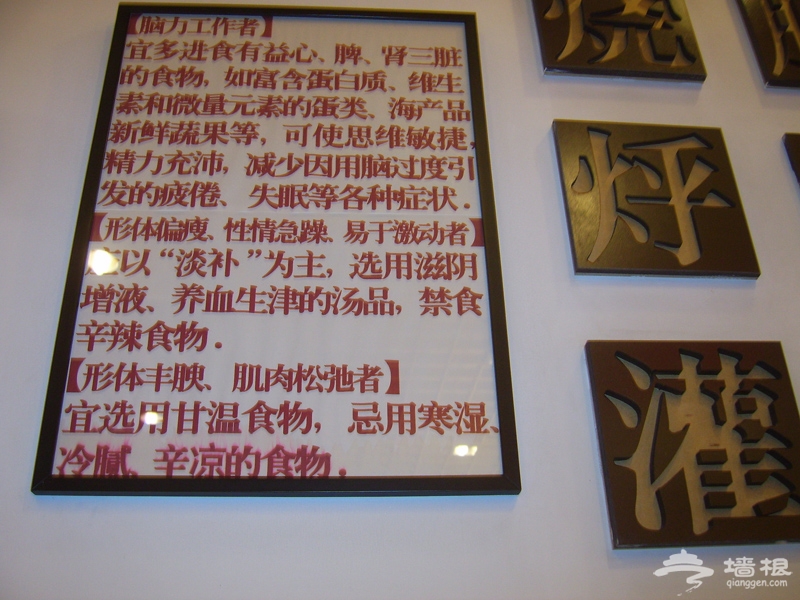 【脑力工作者】
宜多进食有益心、脾、肾三脏
的食物，如富含蛋白质、维生
素和微量元素的蛋类、海产品
新鲜蔬果等，可使思维敏捷，
精力充沛，减少因用脑过度引
发的疲倦、失眠等各种症状．
【形体偏瘦、性情急躁、易于激动者】
应以“淡补”为主，选用滋阴
增液、养血生津的汤品，禁食
辛辣食物．
【形体丰腴、肌肉松弛者】
宜选用甘温食物，忌用寒湿、
冷腻、辛凉的食物．
烧
烀
灌
墙根
qianggen.com